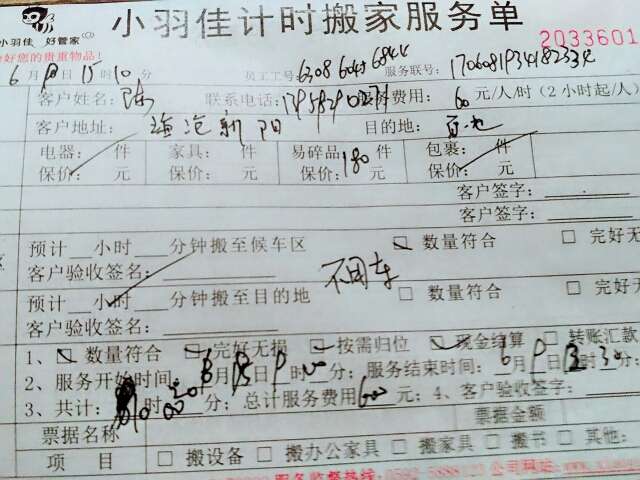 小羽佳计时搬家服务单
小羽佳 好管家
好您的贵重物品!
2033601
6月 日15时10分 员工工号: 6308 服务联号: 1706081934182334
客户姓名: 陈 联系电话: 费用: 60元/人/时(2小时起/人)
客户地址: 海沧新阳 目的地:
电器: 件 家具: 件 易碎品 件 包裹: 件
保价: 元 保价: 元 保价: 180 元 保价: 元
客户签字:
客户签字:
预计__小时___分钟搬至候车区 数量符合 □ 完好无
客户验收签名: 不用车
预计__小时___分钟搬至目的地 □ 数量符合 □ 完好无
客户验收签名:
1、 数量符合 完好无损 按需归位 现金结算 □ 转账汇款
2、服务开始时间: 6月 日 时 分; 服务结束时间: 6月 日 30分;
3、共计: 时 分; 总计服务费用600元; 4、客户验收签字:
票据名称 票据金额
项 目 □ 搬设备 □ 搬办公家具 □ 搬家具 □ 搬书 □ 其他:
服务监督热线: 0592-5888123 公司网站: